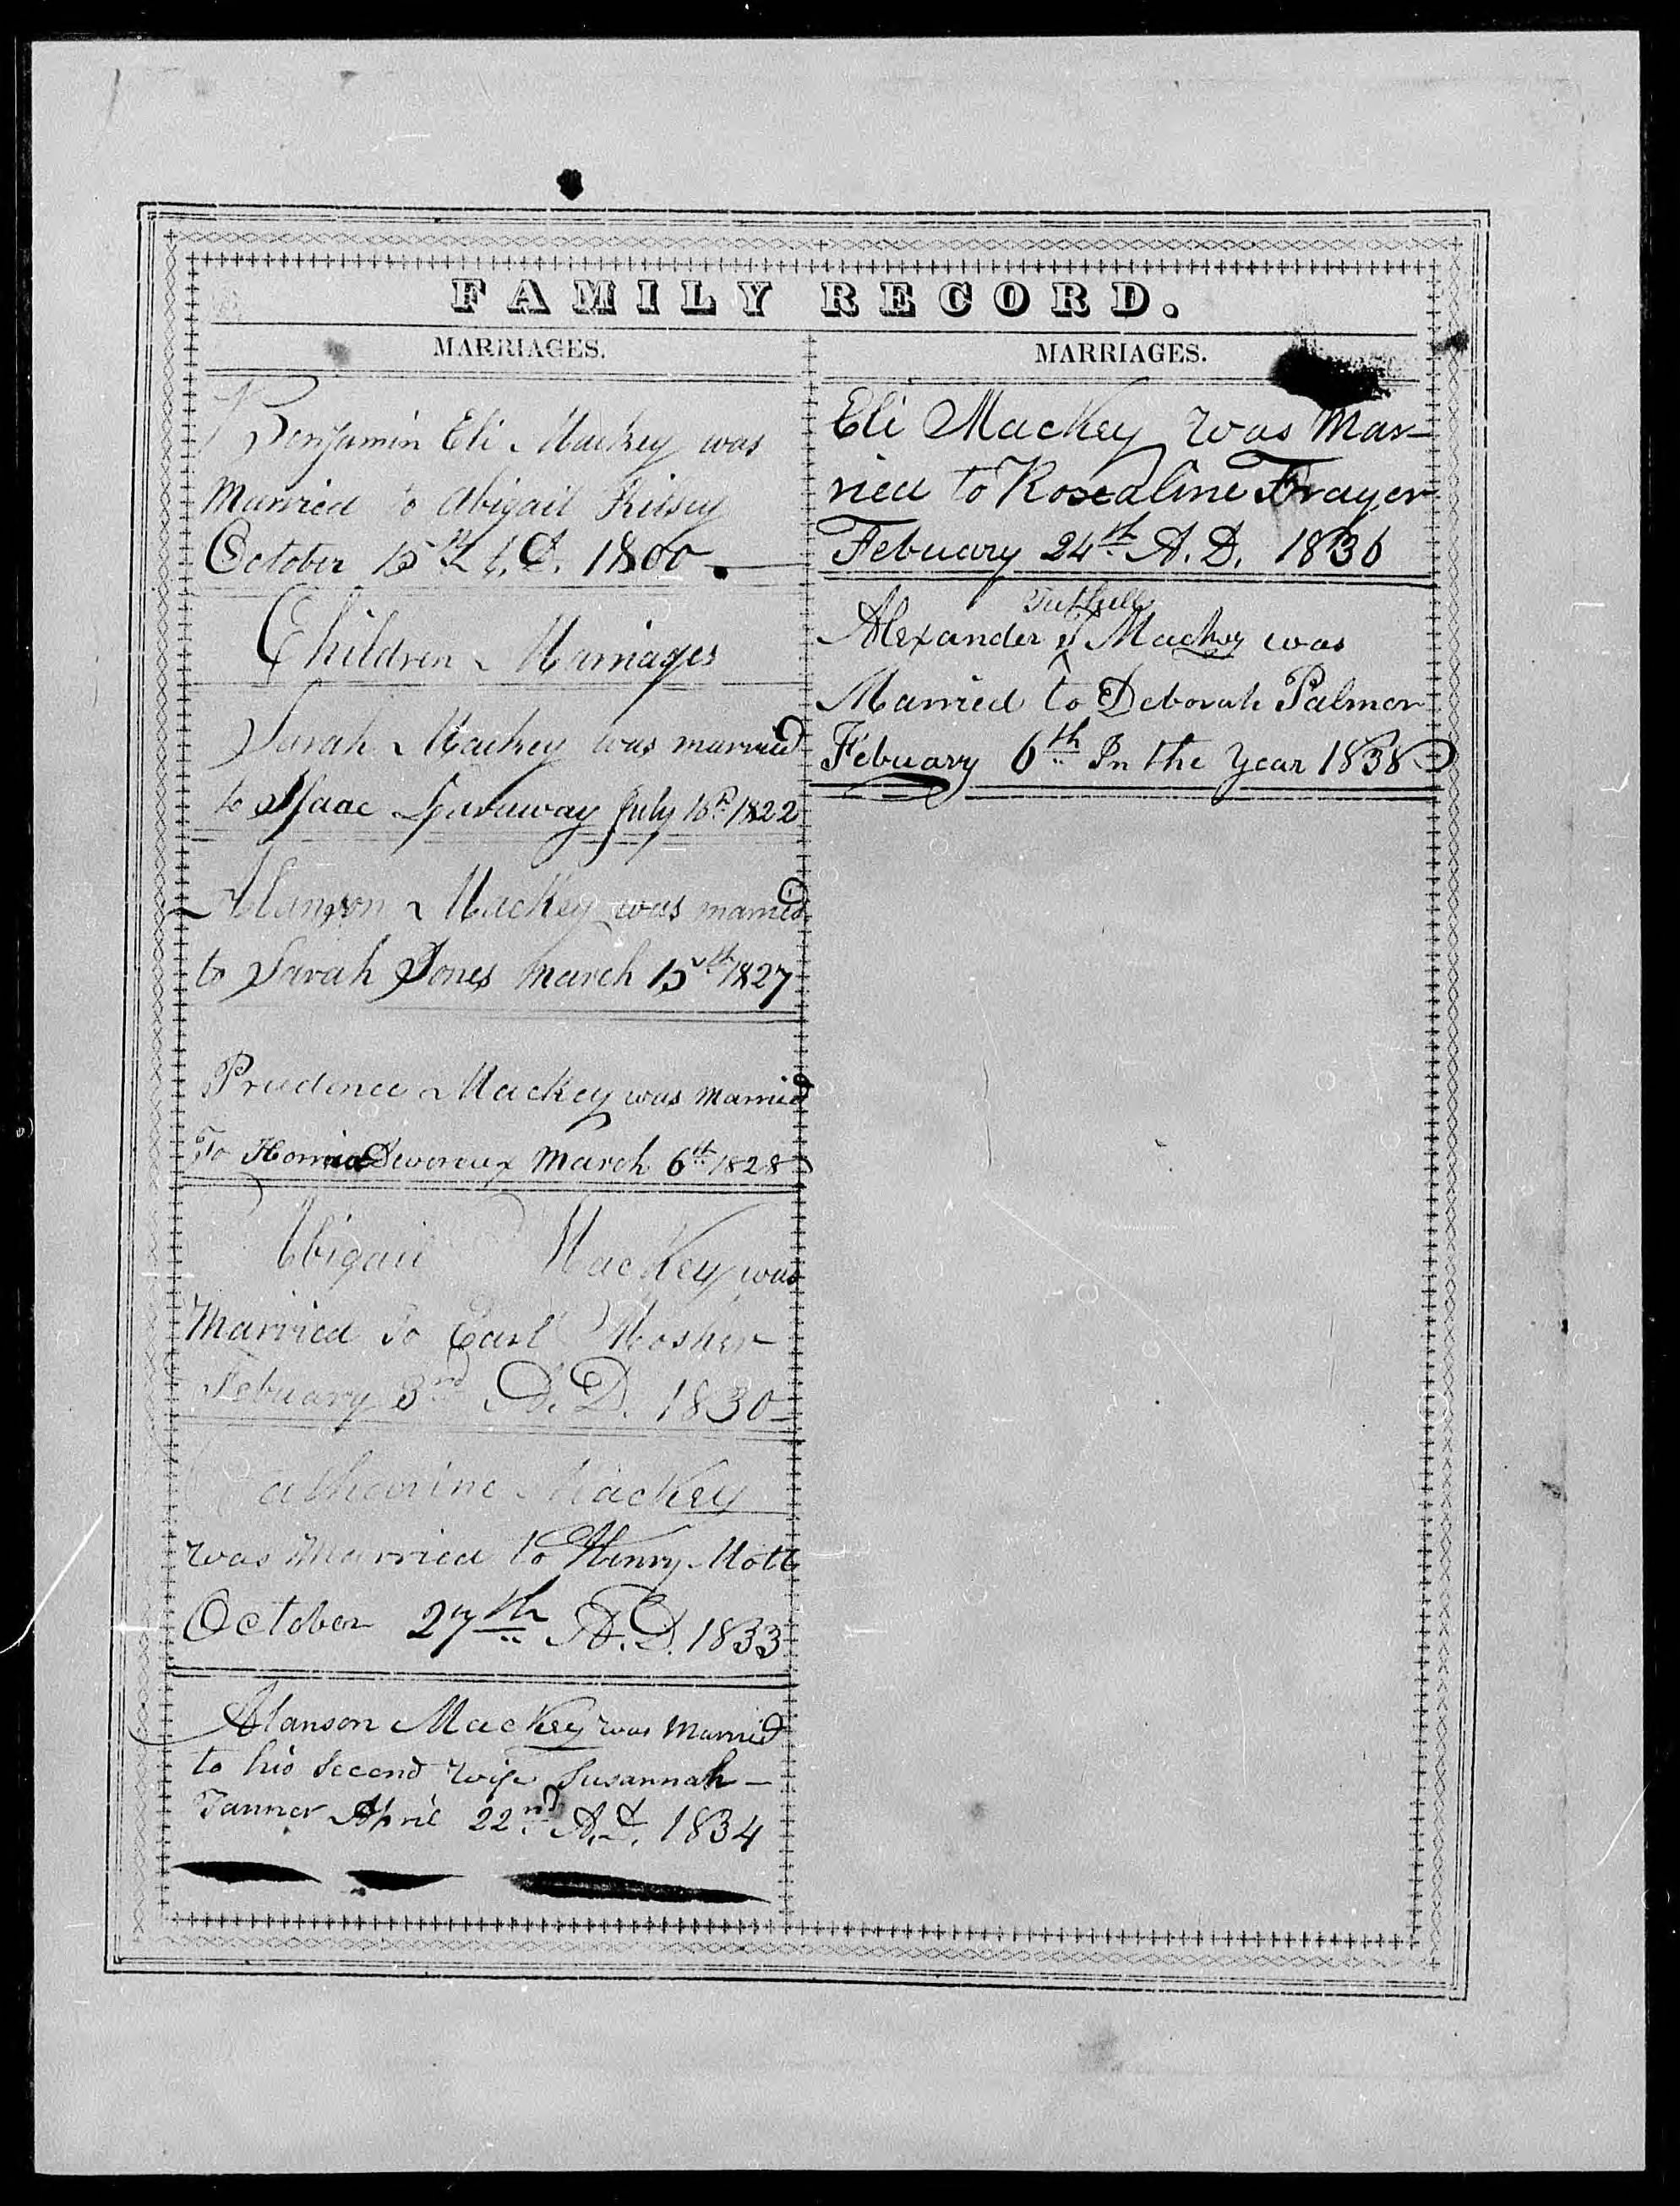 FAMILY RECORD.
MARRIAGES.
Benjamin Eli Mackey was
Married to Abigail
October 15th A.D. 1800
Children Marriages
Sarah Mackey was married
to Isaac July 1822
Alanson Mackey was married
to Sarah Jones March 15th 1827
Prudence Mackey was Married
To Devereux March 6th 1828
Abigail Mackey was
Married to Earl Mosher
Febuary 3rd A.D. 1830
Catharine Mackey
was Married to Henry Mott
October 27th A.D. 1833
Alanson Mackey was Married
to his Second wife Susannah
Tanner April 22nd A.D. 1834
MARRIAGES.
Eli Mackey was Mar-
ried to Rosealine Frayer
Febuary 24th A.D. 1836
Tuthill
Alexander T Mackey was
Married to Deborah Palmer
Febuary 6th In the Year 1838